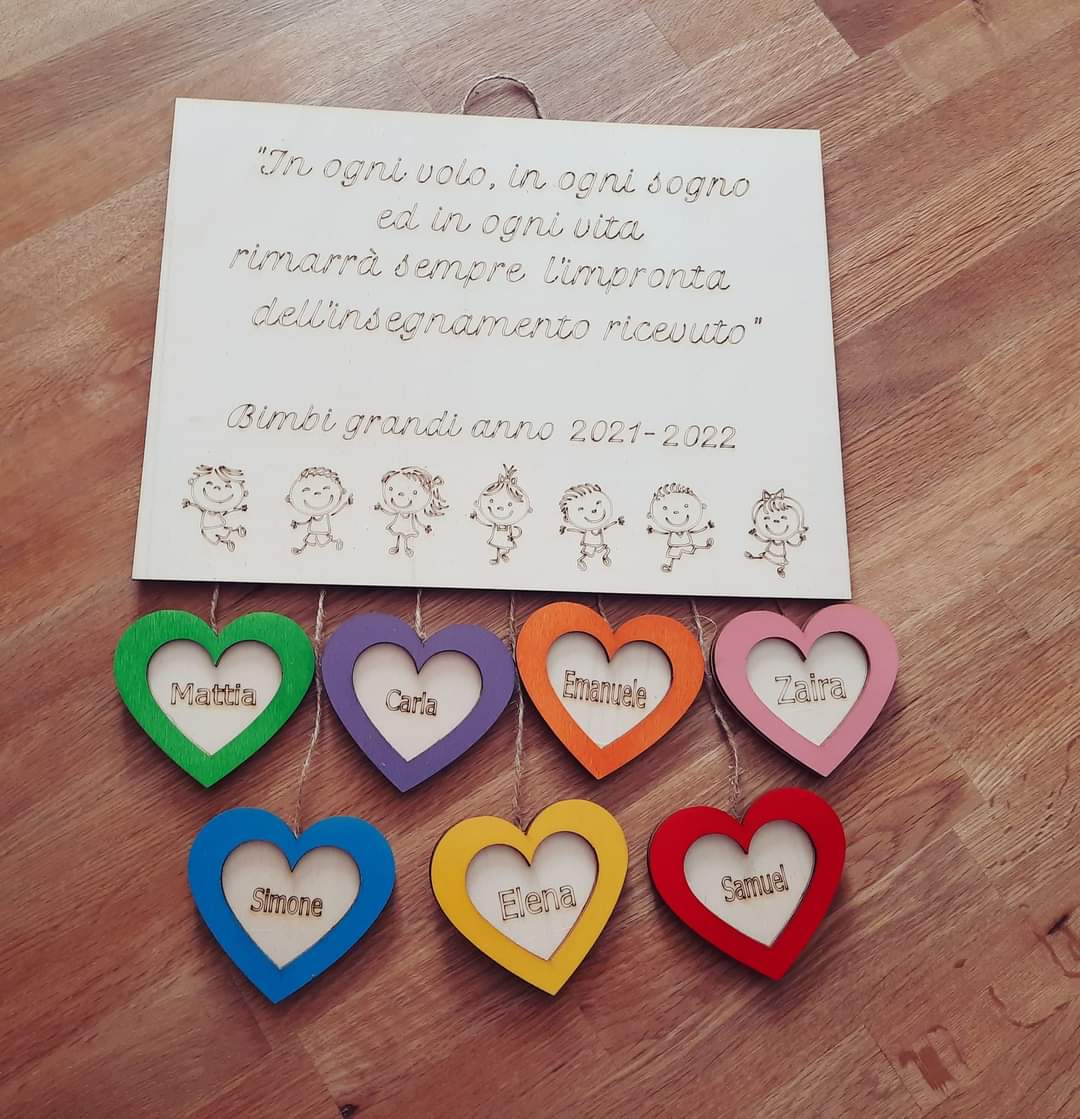 "In ogni volo, in ogni sogno
ed in ogni vita
rimarrà sempre l'impronta
dell'insegnamento ricevuto"
Bimbi grandi anno 2021-2022
Mattia
Carla
Emanuele
Zaira
Simone
Elena
Samuel